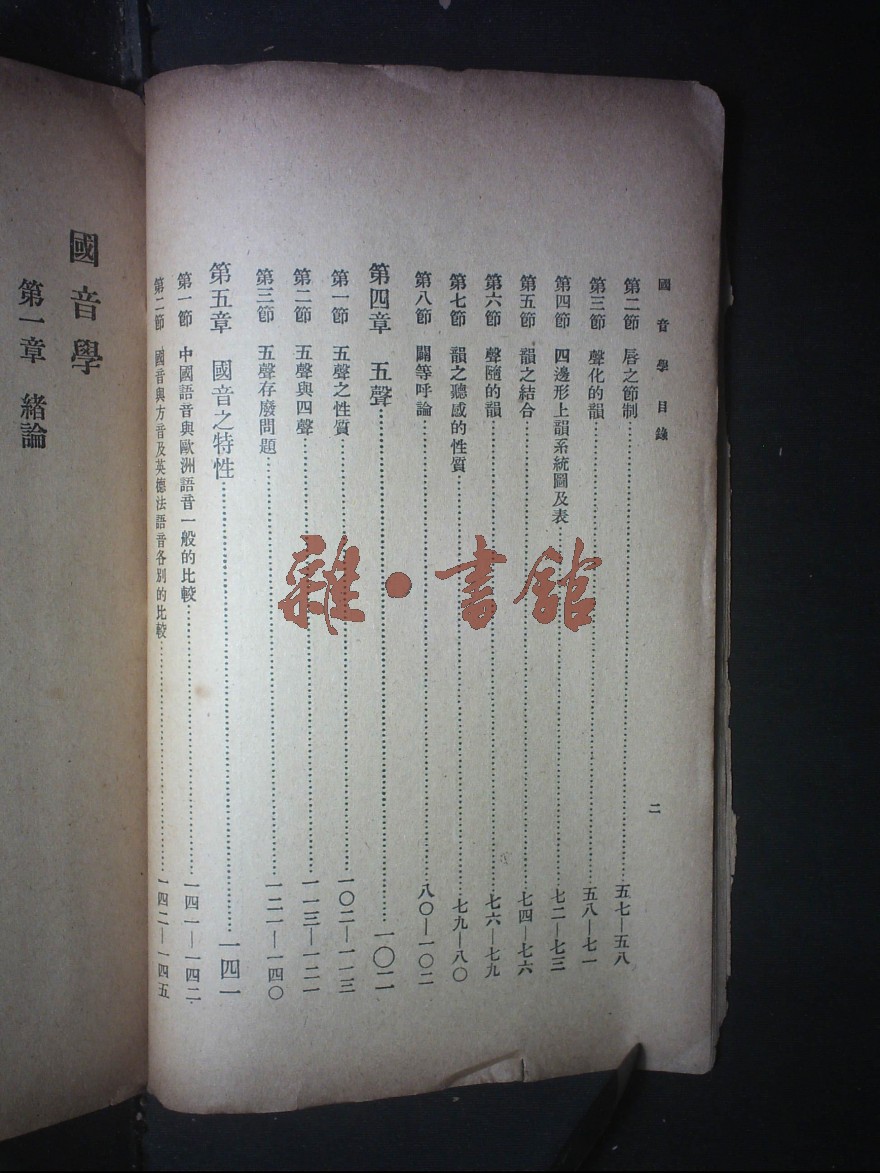 國音學目錄
二
第二節 唇之節制……五七—五八
第三節 聲化的韻……五八—七一
第四節 四邊形上韻系統圖及表……七二—七三
第五節 韻之結合……七四—七六
第六節 聲隨的韻……七六—七九
第七節 韻之聽感的性質……七九—八〇
第八節 闢等呼論……八〇—一〇二
第四章 五聲……一〇二
第一節 五聲之性質……一〇二—一一三
第二節 五聲與四聲……一一三—一二一
第三節 五聲存廢問題……一二一—一四〇
第五章 國音之特性……一四一
第一節 中國語音與歐洲語音一般的比較……一四一—一四二
第二節 國音與方音及英德法語音各別的比較……一四二—一四五
國音學
第一章 緒論
雜·書館